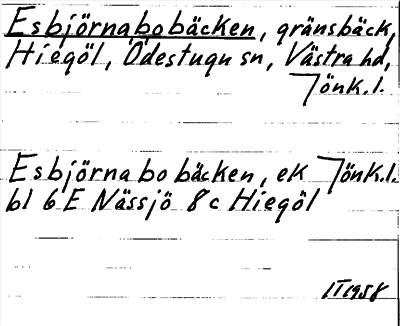 Esbjörnabobäcken, gränsbäck,
Hiegöl, Ödestugu sn, Västra hd,
Jönk.l.
Esbjörnabobäcken, ek Jönk.l.
bl 6E Nässjö 8c Hiegöl
IT1958